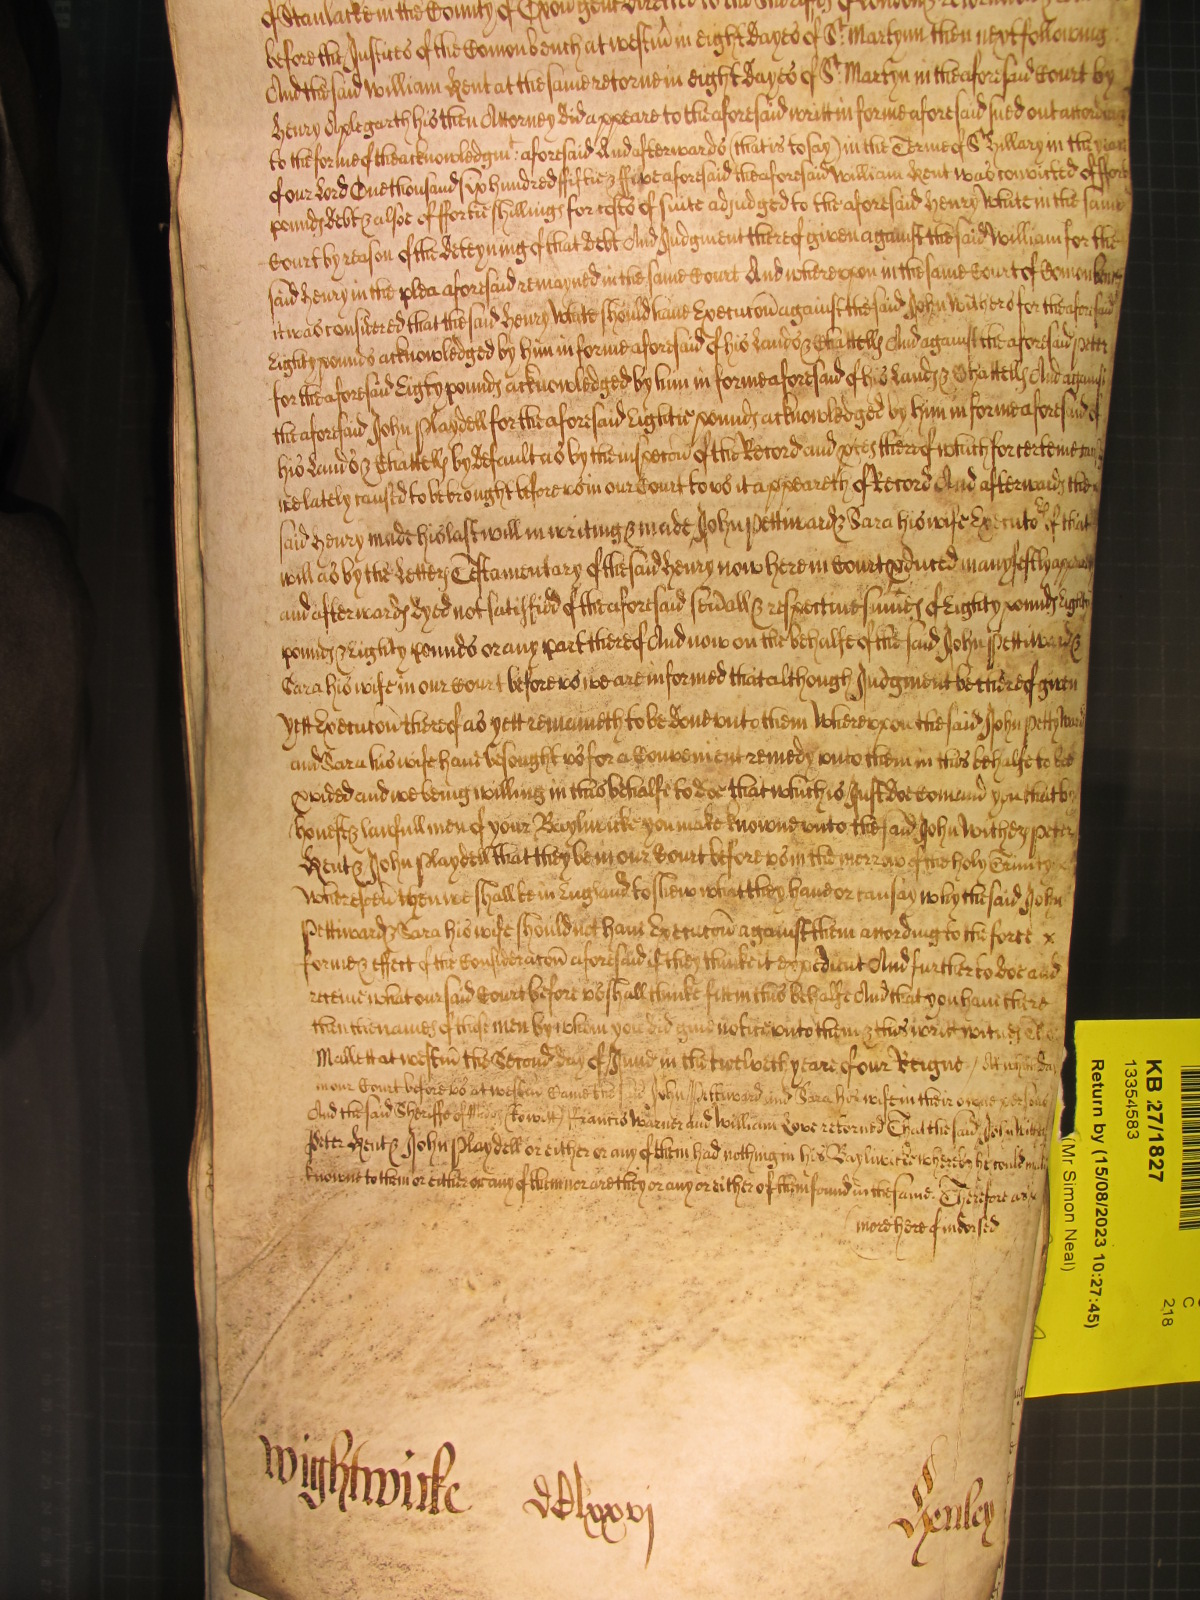 of Stanlacke in the County of Oxon gent directed to the Sheriffs of London retornable
before the Justices of the Comon bench at westm̄ in eight dayes of St. Martynn then next following
And the said William Kent at the same retorne in eight dayes of St. Martyn in the aforesaid Court by
Henry Aplegarth his then Attorney did appeare to the aforesaid writt in forme aforesaid sued out according
to the forme of the acknowledgmt. aforesaid And afterwards (that is to say) in the Terme of St. Hillary in the yeare
of our Lord One thousand six hundred fiftie & ffive aforesaid the aforesaid William Kent was convicted of
pounds debt & alsoe of ffortie shillings for costs of suite adjudged to the aforesaid Henry White in the same
Court by reason of the deteyning of that debt And Judgment thereof given against the said William for the
said Henry in the plea aforesaid remayned in the same Court And whereupon in the same Court of Comon bench
it was considered that the said Henry White should have Execucōn against the said John Withers for the aforesaid
Eighty pounds acknowledged by him in forme aforesaid of his Lands & Chattells And against the aforesaid Peter
for the aforesaid Eigty pounds acknowledged by him in forme aforesaid of his Lands & Chattells And against
the aforesaid John Playdell for the aforesaid Eightie pounds acknowledged by him in forme aforesaid of
his Lands & Chattells by default as by the inspecōn of the Record and pces thereof which for certeme
we lately caused to be brought before us in our Court to us it appeareth of Record And afterwards the
said Henry made his last will in writing & made John Pettiward & Sara his wife Executors of that
will as by the Letters Testamentary of the said Henry now here in Court pduced manyfestly
and afterwards dyed not satisfied of the aforesaid seūall & respective sumēs of Eighty pounds Eighty
pounds & Eighty pounds or any part thereof And now on the behalfe of the said John Pettiward &
Sara his wife in our Court before us we are informed that although Judgment be thereof given
yett Execucōn thereof as yett remaineth to be done unto them Whereupon the said John Pettyward
and Sara his wife have besought us for a Convenient remedy unto them in this behalfe to bee
pvided and we being willing in this behalfe to doe that which is Just doe Comand you that by
honest & lawfull men of your Baylywicke you make knowne unto the said John Withers Peter
Kent & John Playdell that they be in our Court before us in the morrow of the holy Trinity
Wheresoeū then we shall be in England to shew what they have or can say why the said John
Pettiward & Sara his wife should not have Execucōn against them according to the force x
forme & effect of the Consideracōn aforesaid if they thinke it expedient And further to doe and
receive what our said Court before us shall thinke fitt in this behalfe And that you have there
then the names of those men by whom you did give notice unto them & this writt witnes
Mallett at westm̄ the Second day of June in the twelveth yeare of our Reigne / At which day
in our Court before us at westm̄ Came the said John Pettiward and Sara his wife in their owne psons
And the said Sheriffe of Midds (to witt) Francis Warner and William Love retorned That the said John Withers
Peter Kent & John Playdell or either or any of them had nothing in his Baylywicke whereby he could make
knowne to them or either or any of them nor are they or any or either of them found in the same. Therefore as
more hereof indorsed
Wightwicke
dClxxvj
Henley
KB 27/1827
13354583
Return by (15/08/2023 10:27:45)
(Mr Simon Neal)
C
218